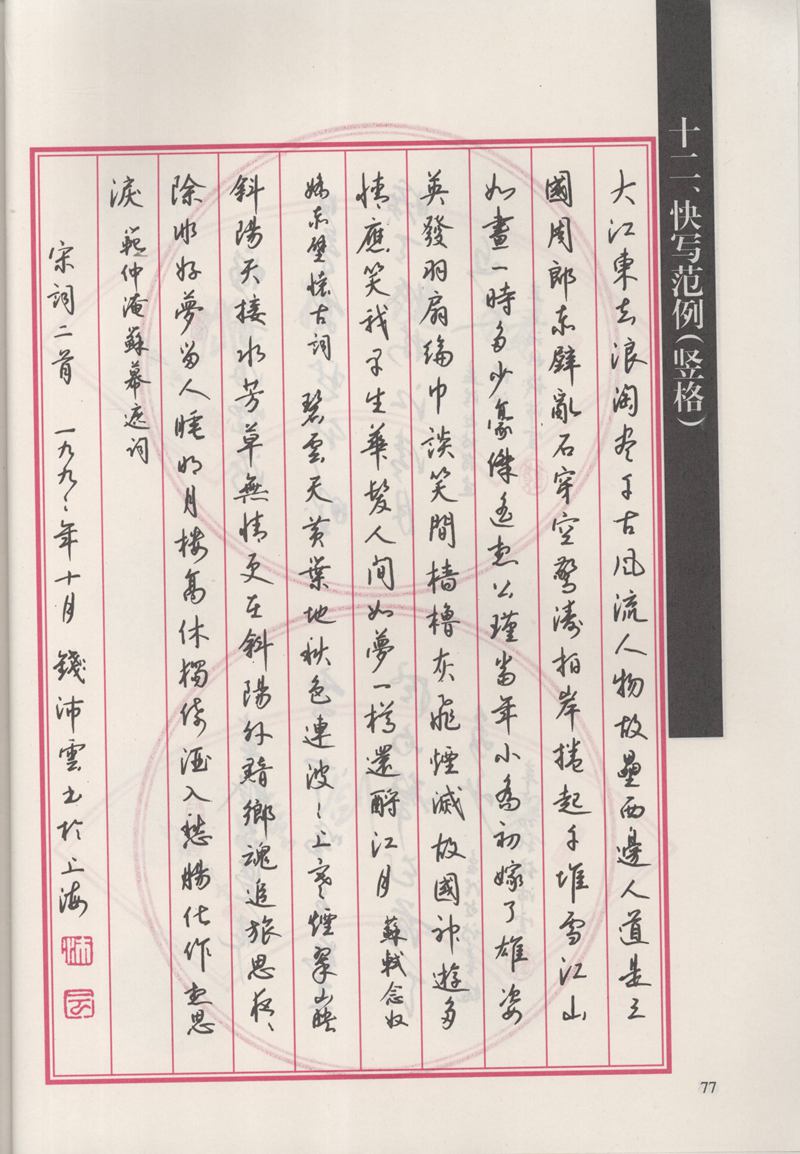 十二、快写范例(竖格)
大江東去浪淘尽千古風流人物故壘西邊人道是三
國周郎赤壁亂石穿空驚濤拍岸捲起千堆雪江山
如畫一時多少豪傑遙想公瑾當年小喬初嫁了雄姿
英發羽扇綸巾談笑間檣櫓灰飛煙滅故國神遊多
情應笑我早生華髮人間如夢一樽還酹江月 蘇軾念奴
嬌赤壁懷古詞 碧雲天黃葉地秋色連波〻上寒煙翠山映
斜陽天接水芳草無情更在斜陽外黯鄉魂追旅思夜〻
除非好夢留人睡明月樓高休獨倚酒入愁腸化作相思
淚 範仲淹蘇幕遮詞
宋詞二首 一九九〻年十月 錢沛雲書於上海
沛
云
77